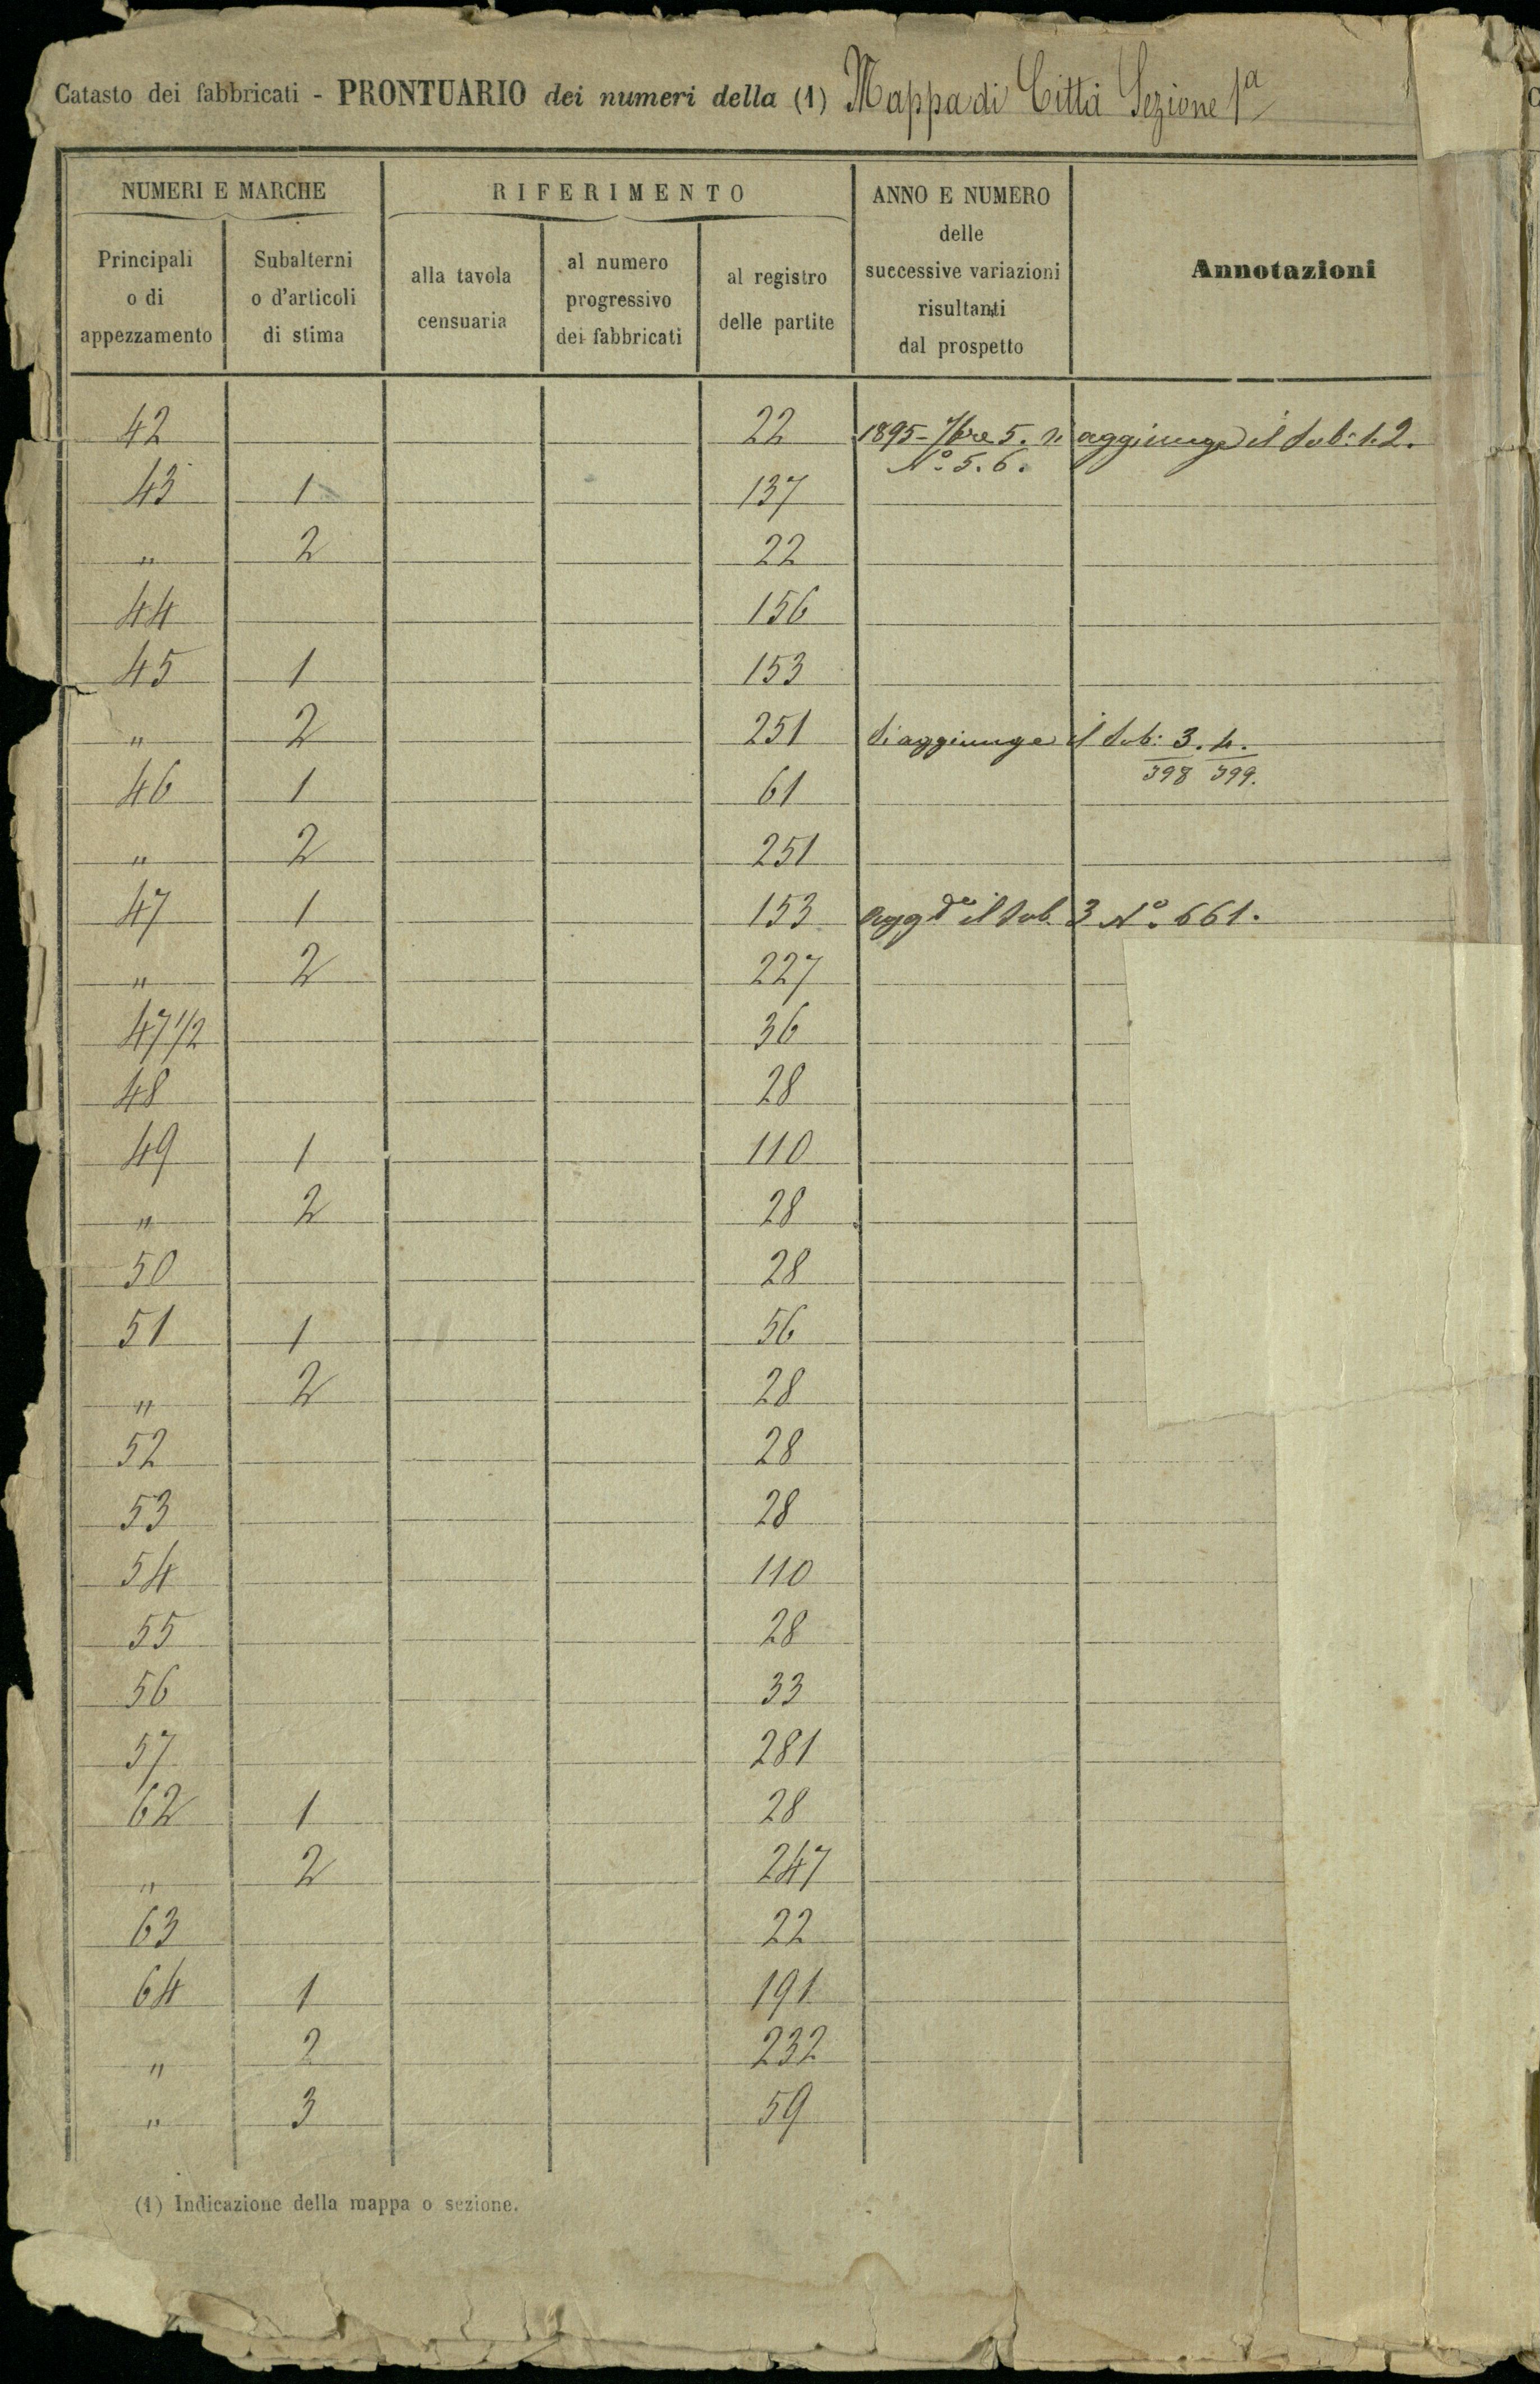 Catasto dei fabbricati - PRONTUARIO dei numeri della (1) Mappa di Città Sezione 1ª
NUMERI E MARCHE
RIFERIMENTO
ANNO E NUMERO
delle
successive variazioni
risultanti
dal prospetto
Annotazioni
Principali
o di
appezzamento
Subalterni
o d'articoli
di stima
alla tavola
censuaria
al numero
progressivo
dei fabbricati
al registro
delle partite
42 22 1895- 7bre 5. si aggiunge il sub: 1.2.
Nº 5.6.
43 1 137
" 2 22
44 156
45 1 153
" 2 251 Si aggiunge il sub: 3. 4.
398 399.
46 1 61
" 2 251
47 1 153 il sub. 3 Nº 661.
" 2 227
47 1/2 36
48 28
49 1 110
" 2 28
50 28
51 1 56
" 2 28
52 28
53 28
54 110
55 28
56 33
57 281
62 1 28
" 2 247
63 22
64 1 191
" 2 232
" 3 59
(1) Indicazione della mappa o sezione.